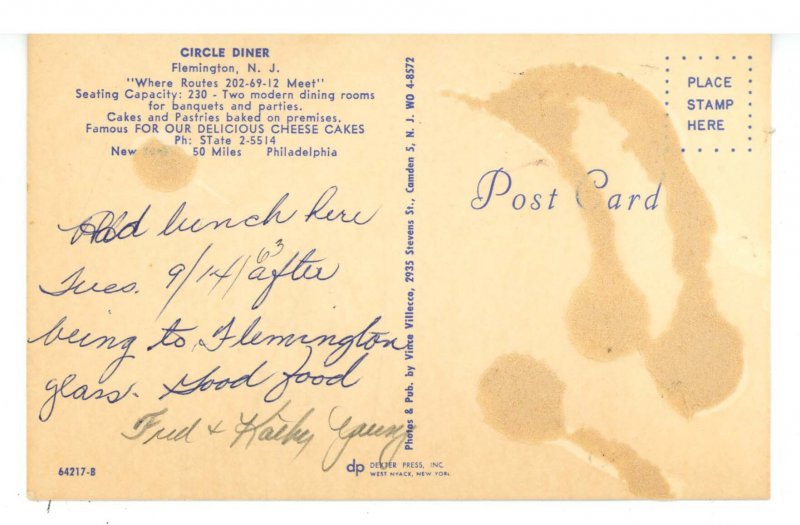 CIRCLE DINER
Flemington, N. J.
"Where Routes 202-69-12 Meet"
Seating Capacity: 230 - Two modern dining rooms
for banquets and parties.
Cakes and Pastries baked on premises.
Famous FOR OUR DELICIOUS CHEESE CAKES
Ph: STate 2-5514
New York 50 Miles Philadelphia
Had lunch here
Tues. 9/14/63 after
being to Flemington
glass. Good food
Fred + Kathy Young
64217-B
Photos & Pub. by Vince Villecco, 2935 Stevens St., Camden 5, N. J. WO 4-8572
dp DEXTER PRESS, INC.
WEST NYACK, NEW YORK
Post Card
PLACE
STAMP
HERE